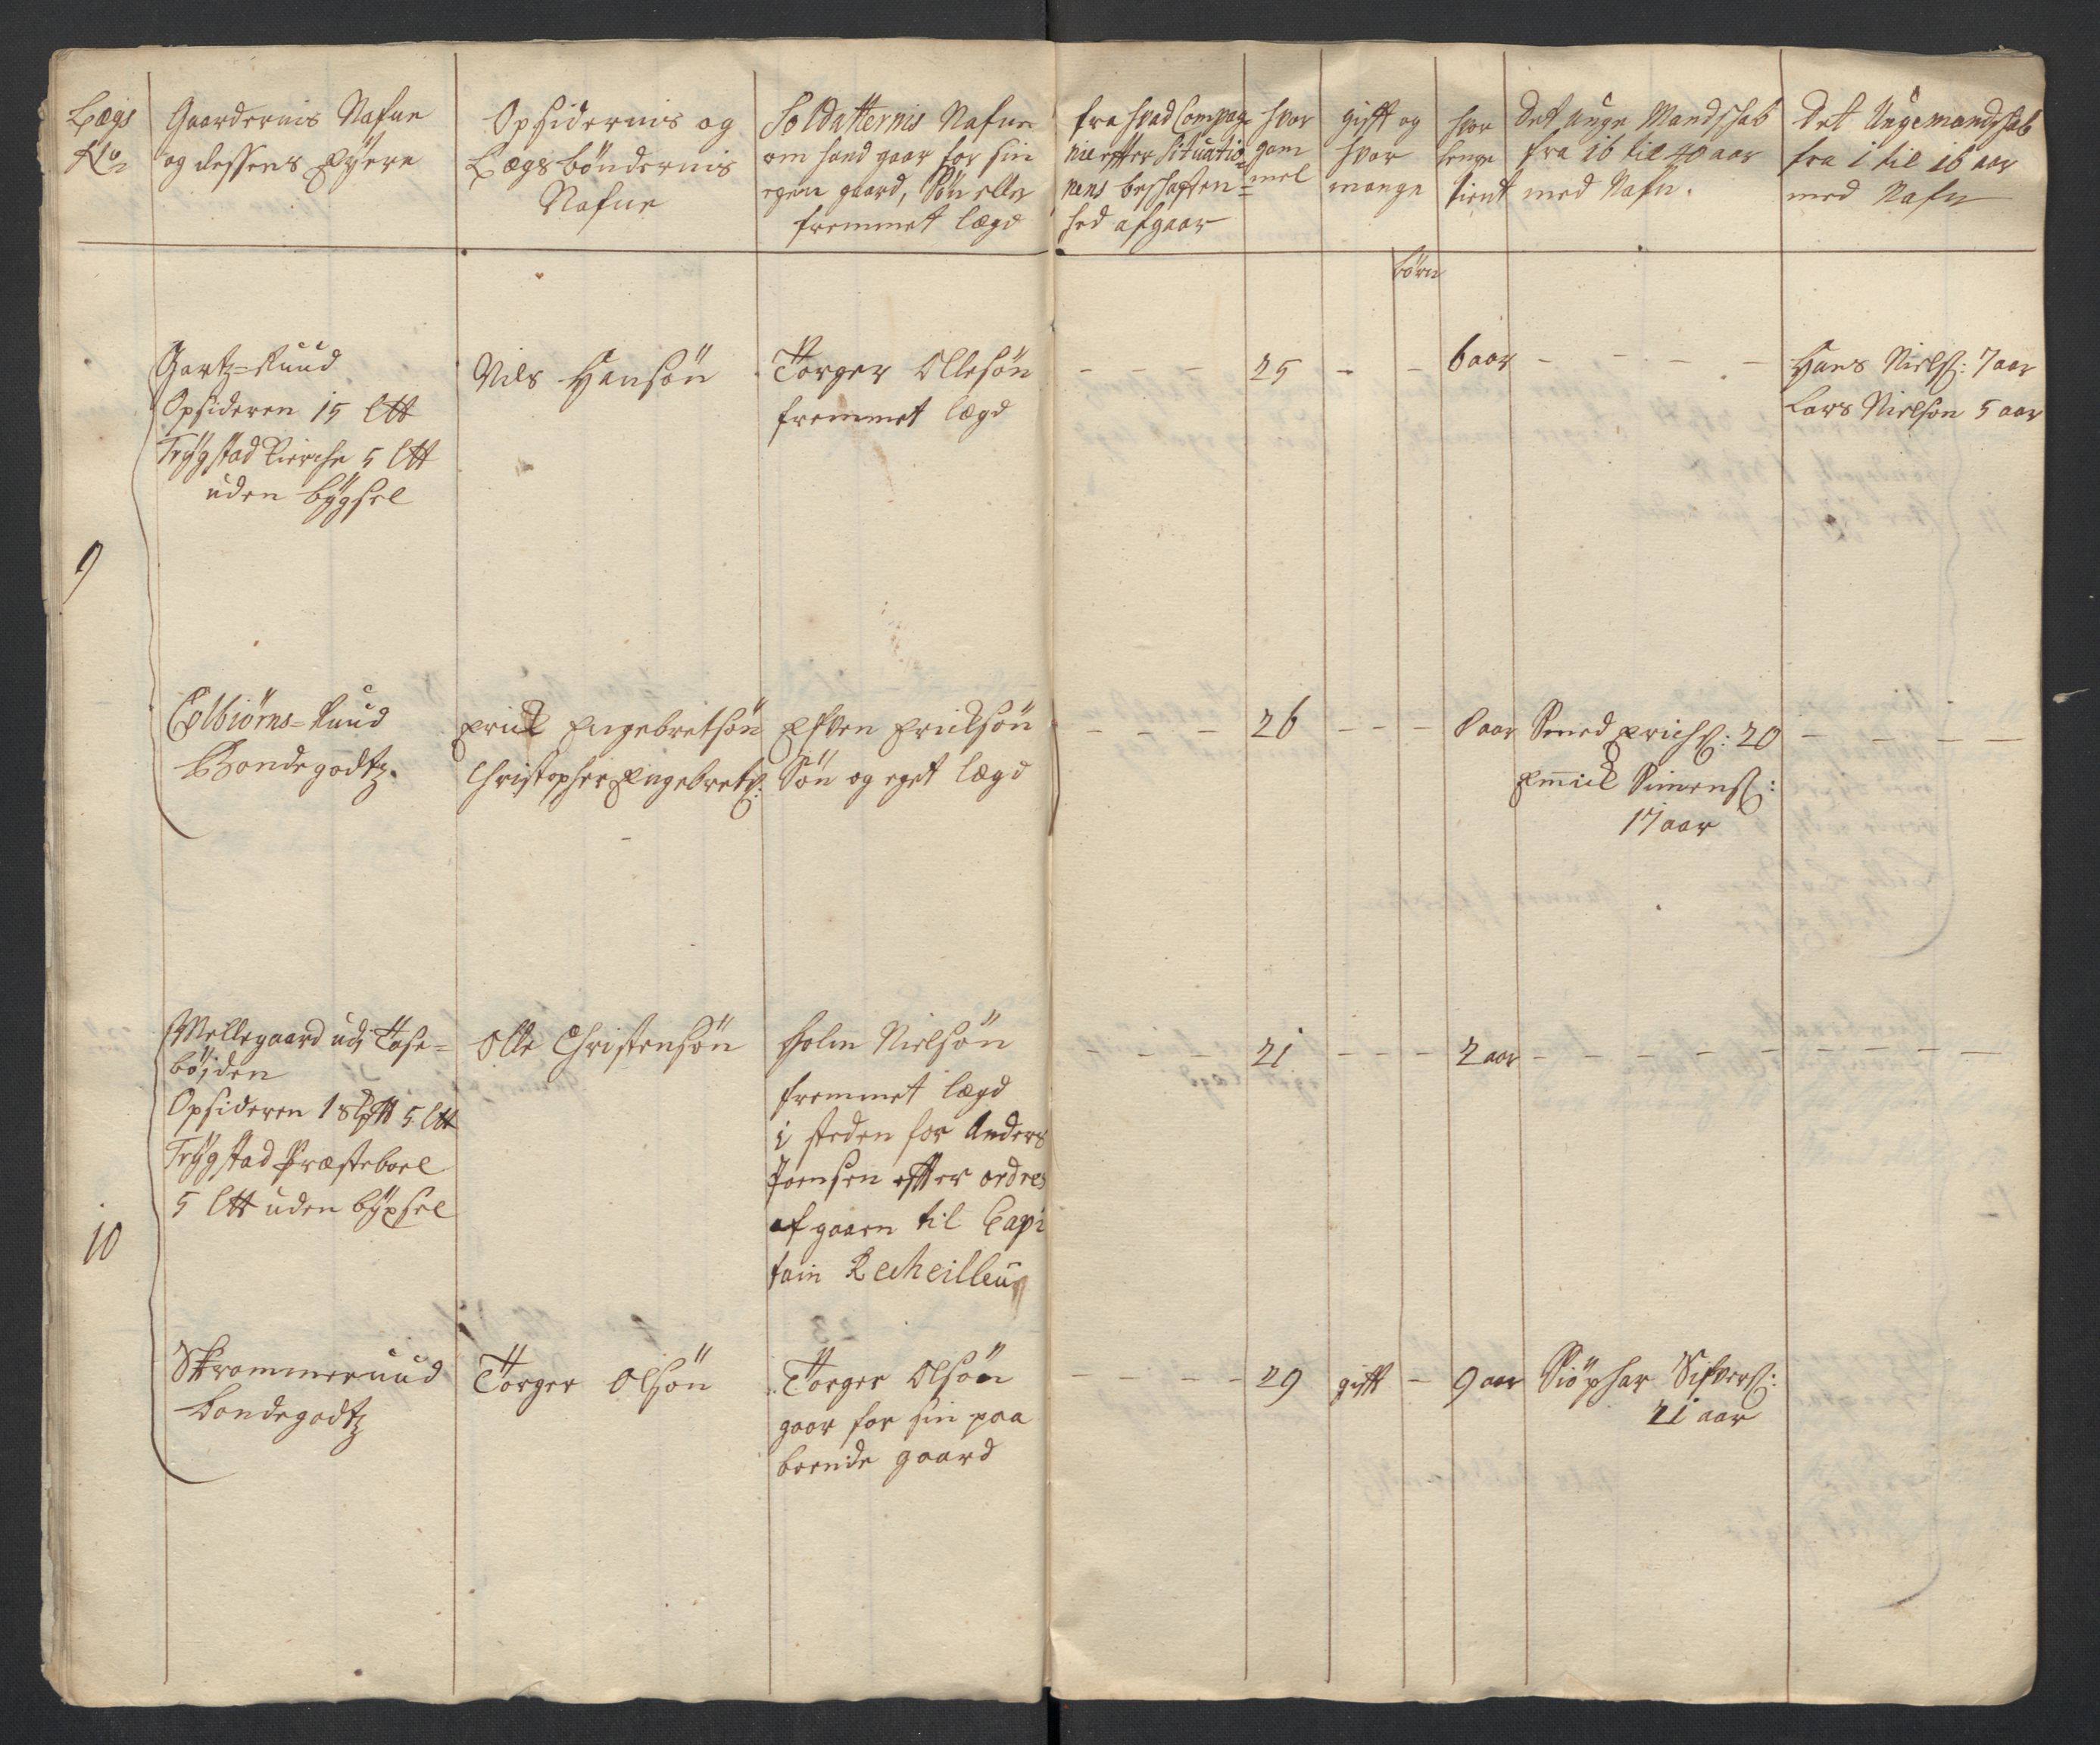 Lægs
No
Gaardernis Nafne
og dessens Eÿere
Opsidernis og
Lægsbøndernis
Nafne
Soldatternis Nafne
om hand gaar for sin
egen gaard, Søn eller
fremmet lægd
fra hvad Compag
nie effter Situatio
nens beschaffen-
hed afgaar
hvor
gam
mel
gifft og
hvor
mange
hvor
lenge
tient
Det unge Mandschab
fra 16 til 40 aar
med Nafn.
Det Ungemandschab
fra 1 til 16 aar
med Nafn
børn
9
Gartz=Ruud
Opsideren 15 Ltt
Trÿgstad Kierche 5 Ltt
uden bÿgsel
Nils Hansön
Torger Ollesön
fremmet lægd
- - - 25 - - 6 aar - - - -
Hans Niels: 7 aar
Lars Nielson 5 aar
Colbiørns=Ruud
Bondegodtz.
Erick Engebretsön
Christopher Engebrets:
Esven Ericksön
Sön og eget lægd
- - - 26 - - - 8 aar
Smed Erichs: 20
Emick Simens:
17 aar
- - - -
10
Mellegaard udj Tose=
böjden
Opsideren 1 skltt 5 Ltt
Trÿgstad Præsteboel
5 Ltt uden bÿxsel
Olle Christensön
Holm Nielsön
fremmet lægd
i steden for Anders
Joensen effter ordres
afgaaen til Capi
tain Recheilleu
- - - 21 - - - 2 aar - - - - - - - - -
Skrammeruud
Bondegodtz
Torger Olsön
Torger Olsön
gaar for sin paa
boende gaard
- - - - 29 gifft - 9 aar
Siöphar Sifvers:
21 aar